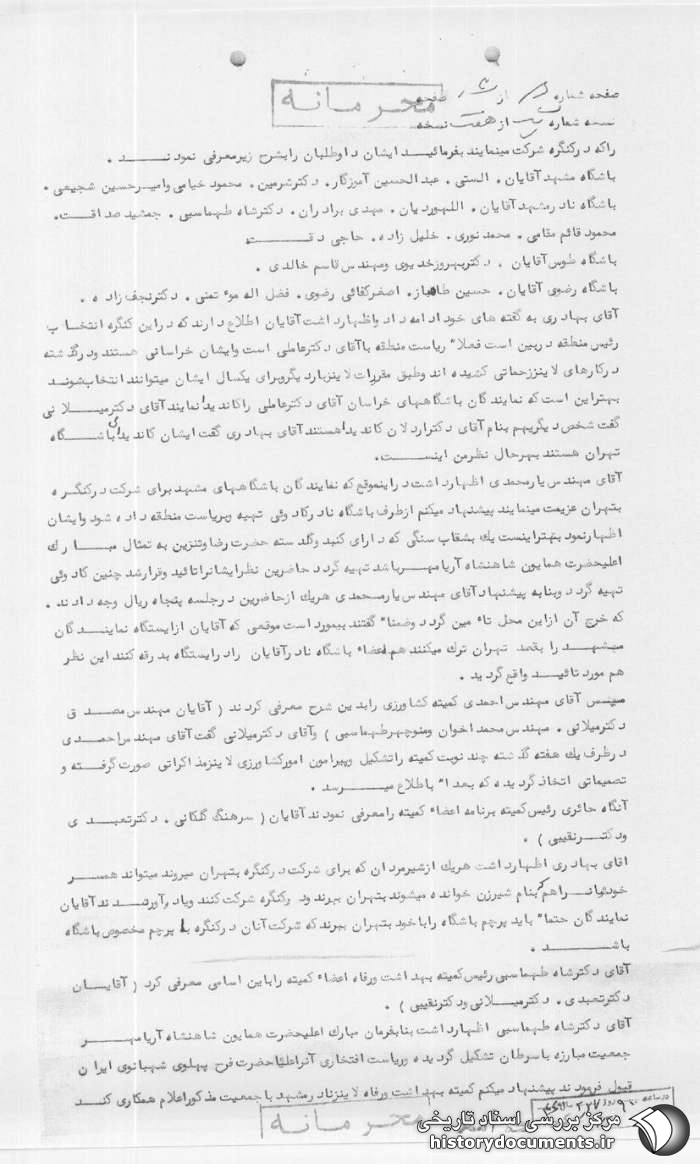 صفحه شماره از صفحه
محرمانه
نسخه شماره از هفت نسخه
راکه درکنگره شرکت مینمایند بفرمائید ایشان داوطلبان رابشرح زیرمعرفی نمودند .
باشگاه مشهد آقایان . الستی . عبدالحسین آموزگار . دکترشرمین . محمود خیامی وامیرحسین شجیعی .
باشگاه نادرمشهد آقایان . اللهوردیان . مهدی برادران . دکترشاه طهماسبی . جمشید صداقت .
محمود قائم مقامی . محمد نوری . خلیل زاده . حاجی دقت
باشگاه طوس آقایان . دکتربهروزخدیوی ومهندس قاسم خالدی .
باشگاه رضوی آقایان . حسین طاهباز . اصغرکفائی رضوی . فضل اله موء تمنی . دکترنجف زاده .
آقای بهادری به گفته های خود ادامه داد واظهارداشت آقایان اطلاع دارند که دراین کنگره انتخاب
رئیس منطقه دربین است فعلا" ریاست منطقه باآقای دکترعاملی است وایشان خراسانی هستند ودرگذشته
درکارهای لاینززحماتی کشیده اند وطبق مقررات لاینزبار دیگروبرای یکسال ایشان میتوانند انتخاب شوند
بهتراین است که نمایندگان باشگاههای خراسان آقای دکترعاملی راکاندیدا نمایند آقای دکترمیلانی
گفت شخص دیگریهم بنام آقای دکترارد لان کاندیدا هستند آقای بهادری گفت ایشان کاندیدای باشگاه
تهران هستند بهرحال نظرمن اینست .
آقای مهندس یارمحمدی اظهارداشت دراینموقع که نمایندگان باشگاههای مشهد برای شرکت درکنگره
بتهران عزیمت مینمایند پیشنهاد میکنم ازطرف باشگاه نادرکادوئی تهیه وبریاست منطقه داده شود وایشان
اظهارنمود بهتراینست یک بشقاب سنگی که دارای گنبد وگلدسته حضرت رضا وتزئین به تمثال مبارک
اعلیحضرت همایون شاهنشاه آریامهرباشد تهیه گردد حاضرین نظرایشانراتائید وقرارشد چنین کادوئی
تهیه گردد وبنابه پیشنهاد آقای مهندس یارمحمدی هریک ازحاضرین درجلسه پنجاه ریال وجه دادند .
که خرج آن ازاین محل تاء مین گردد وضمنا" گفتند بیمورد است موقعی که آقایان ازایستگاه نمایندگان
مشهد را بقصد تهران ترک میکنند هم اعضاء باشگاه نادرآقایان رادرایستگاه بدرقه کنند این نظر
هم مورد تائید واقع گردید .
سپس آقای مهندس احمدی کمیته کشاورزی رابدین شرح معرفی کردند ( آقایان مهندس مصدق
دکترمیلانی . مهندس محمد اخوان ومنوچهرطهماسبی ) وآقای دکترمیلانی گفت آقای مهندس احمدی
درظرف یک هفته گذشته چند نوبت کمیته راتشکیل وپیرامون امورکشاورزی لاینزمذاکراتی صورت گرفته و
تصمیماتی اتخاذ گردیده که بعدا" باطلاع میرسد .
آنگاه حائری رئیس کمیته برنامه اعضاء کمیته رامعرفی نمودند آقایان ( سرهنگ گلکانی . دکترتعبدی
ودکترنقیبی ) .
آقای بهادری اظهارداشت هریک ازشیرمردان که برای شرکت درکنگره بتهران میروند میتواند همسر
خودشانراهم که بنام شیرزن خوانده میشوند بتهران ببرند ود رکنگره شرکت کنند ویاد رآورشدند آقایان
نمایندگان حتما" باید پرچم باشگاه راباخود بتهران ببرند که شرکت آنان درکنگره با پرچم مخصوص باشگاه
باشد .
آقای دکترشاه طهماسبی رئیس کمیته بهداشت ورفاه اعضاء کمیته راباین اسامی معرفی کرد ( آقایان
دکترتعبدی . دکترمیلانی ودکترنقیبی ) .
آقای دکترشاه طهماسبی اظهارداشت بنابفرمان مبارک اعلیحضرت همایون شاهنشاه آریامهر
جمعیت مبارزه باسرطان تشکیل گردیده وریاست افتخاری آنراعلیاحضرت فرح پهلوی شهبانوی ایران
قبول فرمودند پیشنهاد میکنم کمیته بهداشت ورفاه لاینزنادرمشهد باجمعیت مذکوراعلام همکاری کند
محرمانه
مرکز بررسی اسناد تاریخی
historydocuments.ir